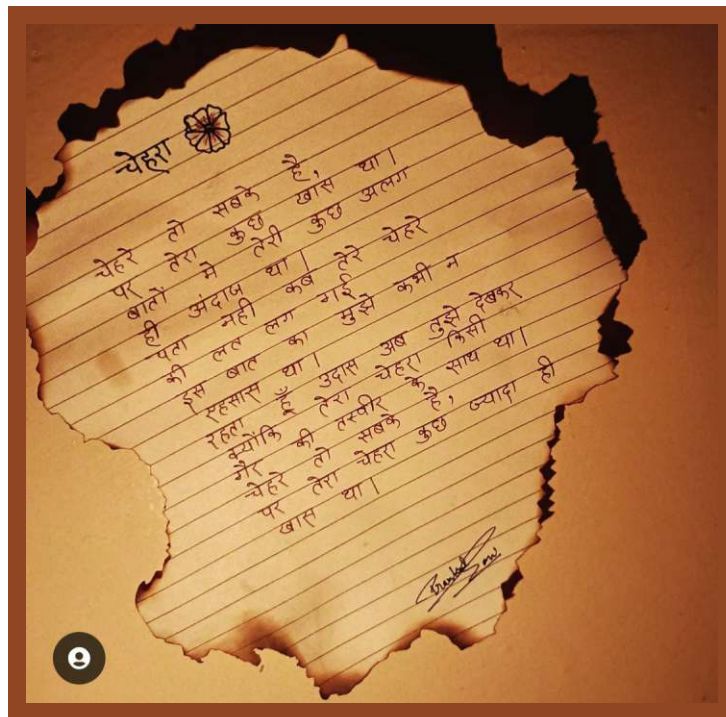 चेहरा
चेहरे तो सबके है,
पर तेरा कुछ खास था।
बातों मे तेरी कुछ अलग
ही अंदाज था।
पता नही कब तेरे चेहरे
की लत लग गई
इस बात का मुझे कभी न
एहसास था।
रहता हूँ उदास अब तुझे देखकर
क्योंकि तेरा चेहरा किसी
गैर की तस्वीर के साथ था।
चेहरे तो सबके है,
पर तेरा चेहरा कुछ ज्यादा ही
खास था।